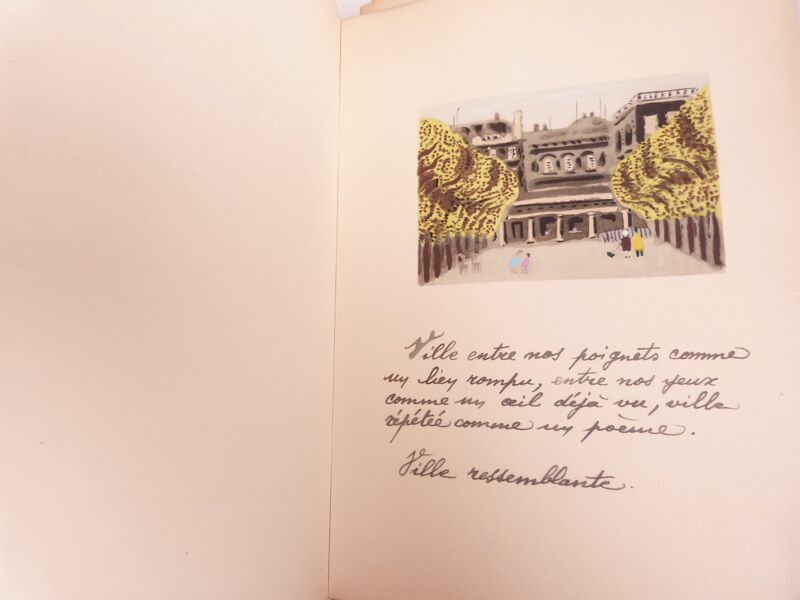 Ville entre nos poignets comme
un lien rompu, entre nos yeux
comme un œil déjà vu, ville
répétée comme un poème.
Ville ressemblante.